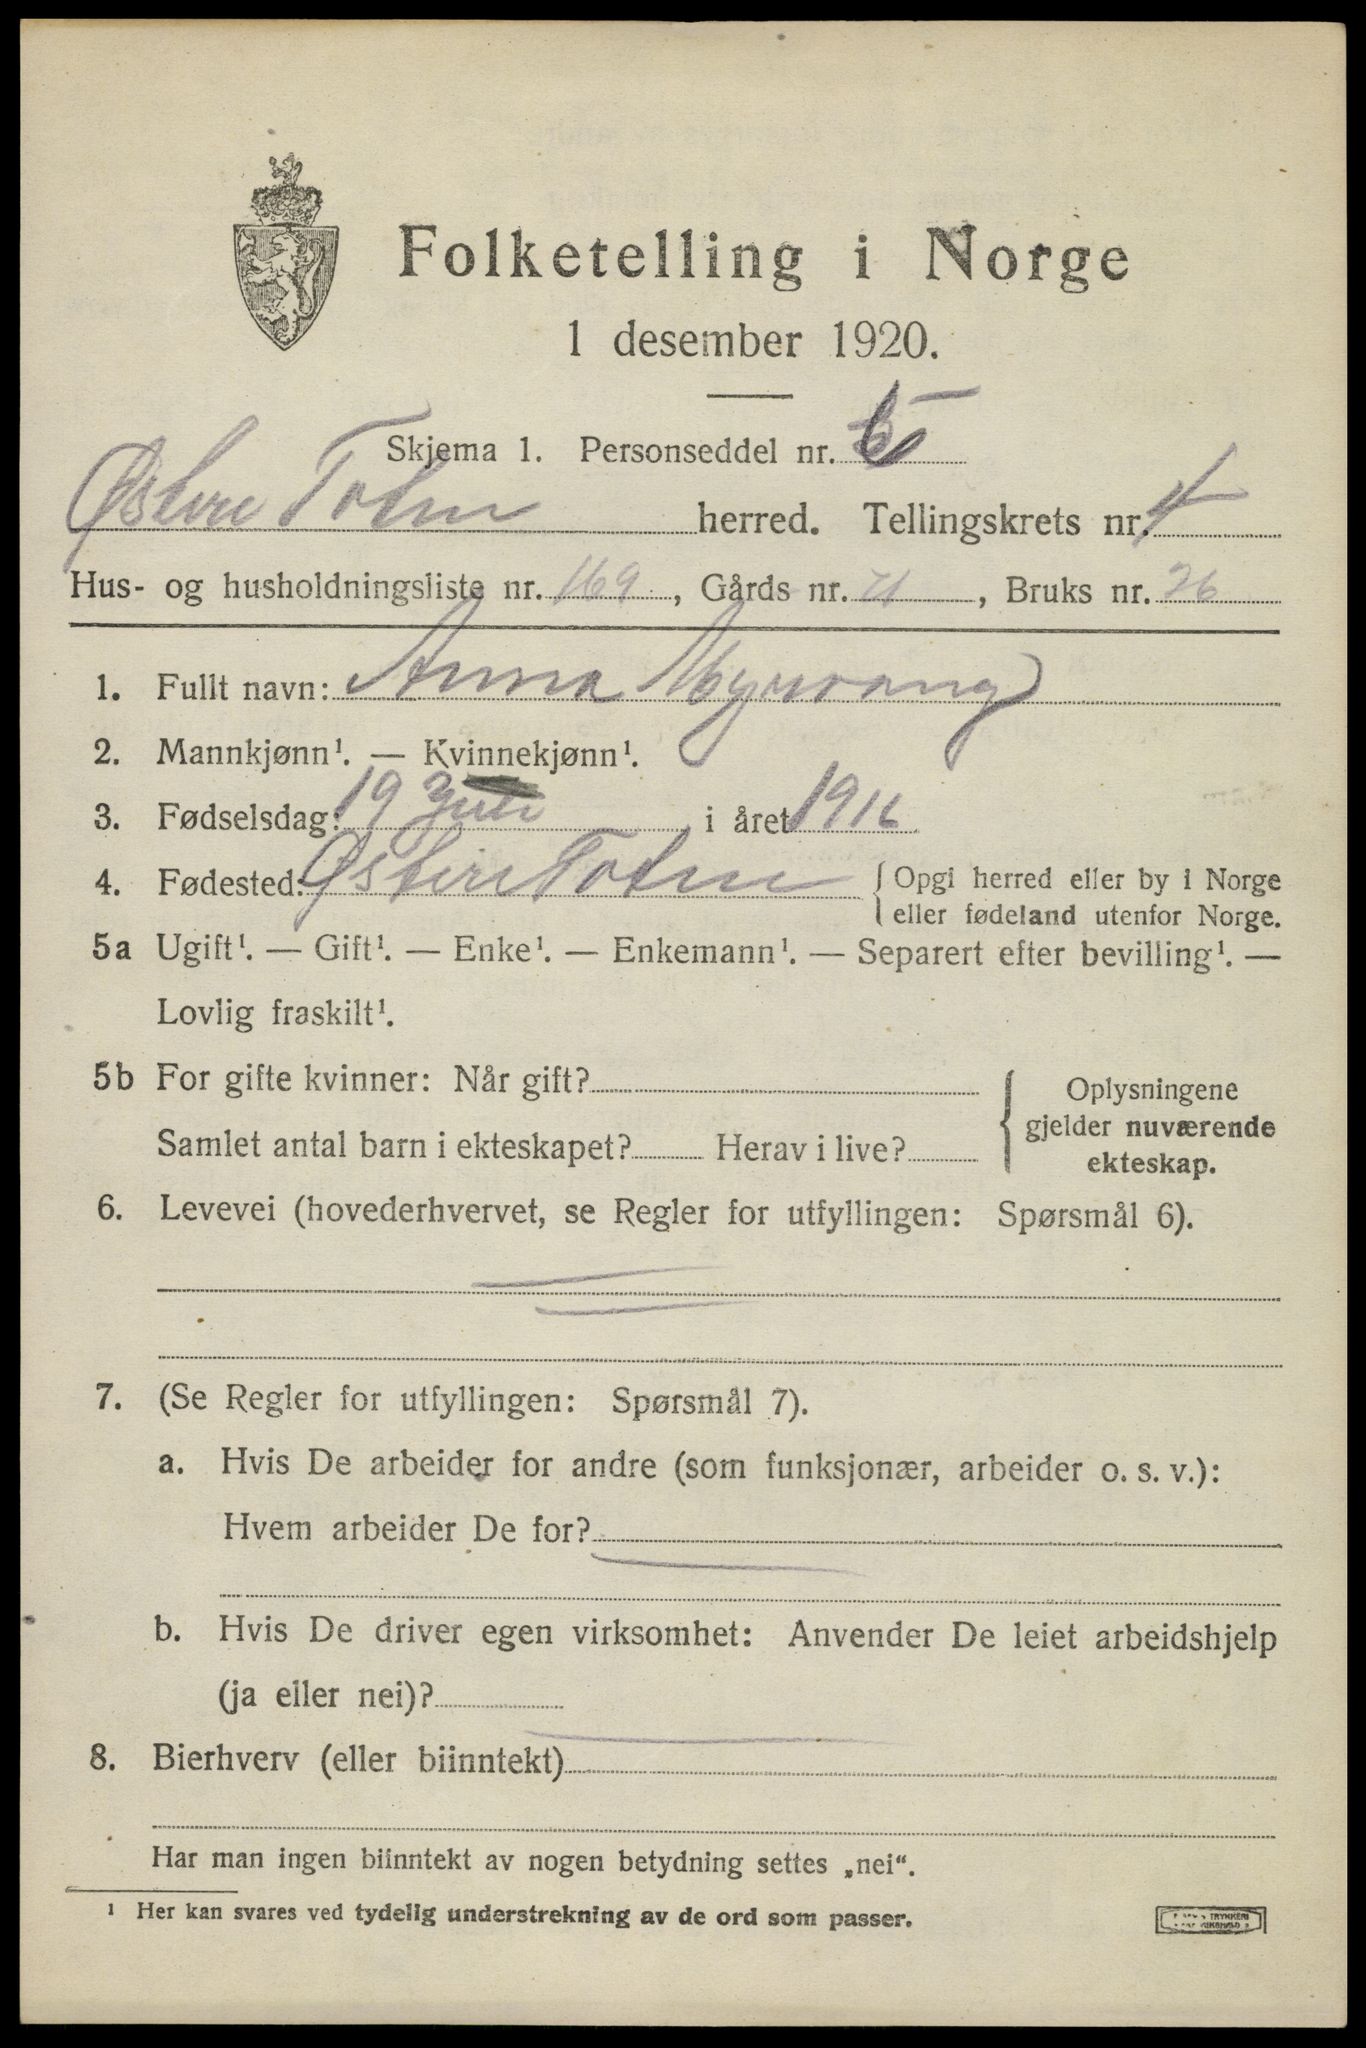 Folketelling i Norge
1 desember 1920.
Skjema 1. Personseddel nr. 5
Østre Toten herred. Tellingskrets nr. 4
Hus- og husholdningsliste nr. 169, Gårds nr. 71, Bruks nr. 26
1. Fullt navn: Anna Myrvang
2. Mannkjønn¹. — Kvinnekjønn¹.
3. Fødselsdag: 19 Juli i året 1916
4. Fødested: Østre Toten { Opgi herred eller by i Norge
eller fødeland utenfor Norge.
5a Ugift¹. — Gift¹. — Enke¹. — Enkemann¹. — Separert efter bevilling¹. —
Lovlig fraskilt¹.
5b For gifte kvinner: Når gift?
Samlet antal barn i ekteskapet? Herav i live?
Oplysningene
gjelder nuværende
ekteskap.
6. Levevei (hovederhvervet, se Regler for utfyllingen: Spørsmål 6).
7. (Se Regler for utfyllingen: Spørsmål 7).
a. Hvis De arbeider for andre (som funksjonær, arbeider o. s. v.):
Hvem arbeider De for?
b. Hvis De driver egen virksomhet: Anvender De leiet arbeidshjelp
(ja eller nei)?
8. Bierhverv (eller biinntekt)
Har man ingen biinntekt av nogen betydning settes „nei“.
¹ Her kan svares ved tydelig understrekning av de ord som passer.